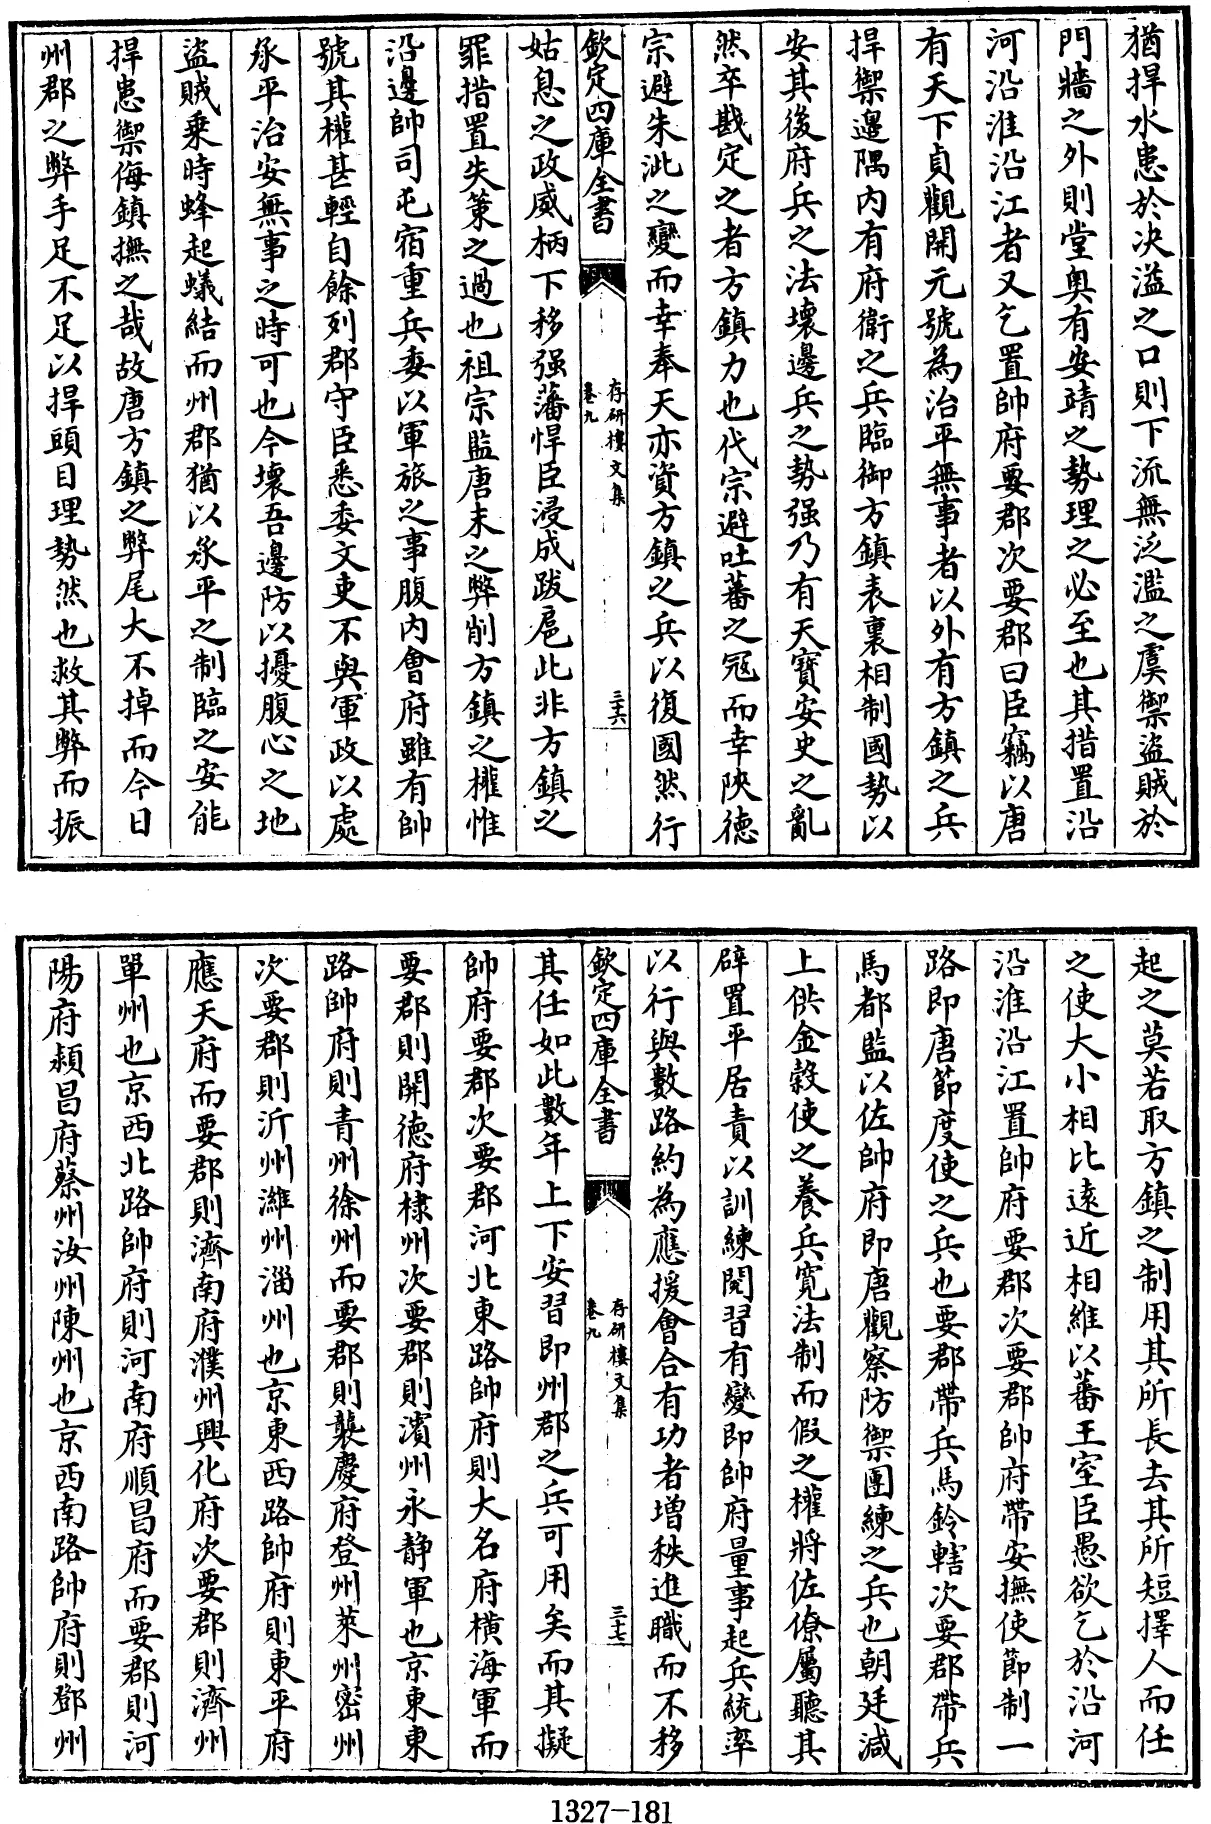 猶捍水患於决溢之口則下流無泛濫之虞禦盜賊於
門牆之外則堂奥有安靖之勢理之必至也其措置沿
河沿淮沿江者又乞置帥府要郡次要郡曰臣竊以唐
有天下貞觀開元號為治平無事者以外有方鎮之兵
捍禦邊隅内有府衛之兵臨御方鎮表裏相制國勢以
安其後府兵之法壞邊兵之勢强乃有天寶安史之亂
然卒戡定之者方鎮力也代宗避吐蕃之冦而幸陜德
宗避朱泚之變而幸奉天亦資方鎮之兵以復國然行
欽定四庫全書
存研樓文集
卷九
三六
姑息之政威柄下移强藩悍臣浸成跋扈此非方鎮之
罪措置失策之過也祖宗監唐末之弊削方鎮之權惟
沿邊帥司屯宿重兵委以軍旅之事腹内會府雖有帥
號其權甚輕自餘列郡守臣悉委文吏不與軍政以處
承平治安無事之時可也今壞吾邊防以擾腹心之地
盜賊乗時蜂起蟻結而州郡猶以承平之制臨之安能
捍患禦侮鎮撫之哉故唐方鎮之弊尾大不掉而今日
州郡之弊手足不足以捍頭目理勢然也救其弊而振
起之莫若取方鎮之制用其所長去其所短擇人而任
之使大小相比遠近相維以蕃王室臣愚欲乞於沿河
沿淮沿江置帥府要郡次要郡帥府帶安撫使節制一
路即唐節度使之兵也要郡帶兵馬鈐轄次要郡帶兵
馬都監以佐帥府即唐觀察防禦團練之兵也朝廷減
上供金穀使之養兵寛法制而假之權將佐僚屬聽其
辟置平居責以訓練閱習有變即帥府量事起兵統率
以行與數路約為應援會合有功者增秩進職而不移
欽定四庫全書
存研樓文集
卷九
三七
其任如此數年上下安習即州郡之兵可用矣而其擬
帥府要郡次要郡河北東路帥府則大名府横海軍而
要郡則開德府棣州次要郡則濱州永静軍也京東東
路帥府則青州徐州而要郡則襲慶府登州萊州密州
次要郡則沂州濰州淄州也京東西路帥府則東平府
應天府而要郡則濟南府濮州興化府次要郡則濟州
單州也京西北路帥府則河南府順昌府而要郡則河
陽府潁昌府蔡州汝州陳州也京西南路帥府則鄧州
1327-181